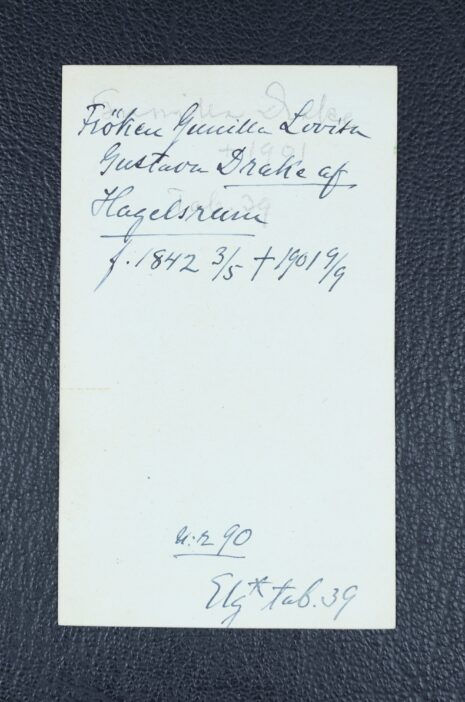 Fröken Gunilla Lovisa
Gustava Drake af
Hagelsrum
f. 1842 3/5 † 1901 9/9
n:r 90
Elg* tab. 39
Gunilla Drake
† 1901
Tab. 39